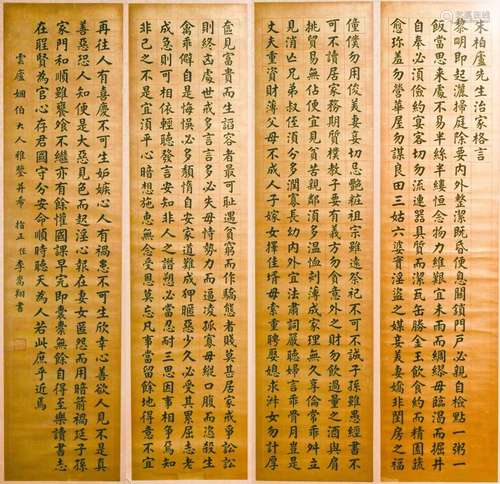 朱柏廬先生治家格言
黎明即起灑掃庭除要內外整潔既昏便息關鎖門戶必親自檢點一粥一
飯當思來處不易半絲半縷恆念物力維艱宜未雨而綢繆毋臨渴而掘井
自奉必須儉約宴客切勿流連器具質而潔瓦缶勝金玉飲食約而精園蔬
愈珍羞勿營華屋勿謀良田三姑六婆實淫盜之媒妾美妻嬌非閨房之福
僮僕勿用俊美妻妾切忌艷粧祖宗雖遠祭祀不可不誠子孫雖愚經書不
可不讀居家務期質樸教子要有義方勿貪意外之財勿飲過量之酒與肩
挑貿易無佔便宜見貧苦親鄰須多溫恤刻薄成家理無久享倫常乖舛立
見消亡兄弟叔侄須分多潤寡長幼內外宜法肅詞嚴聽婦言乖骨月豈是
丈夫重資財薄父母不成人子嫁女擇佳壻毋索重聘娶媳求淑女勿計厚
奩見富貴而生諂容者最可恥遇貧窮而作驕態者賤莫甚居家戒爭訟訟
則終凶處世戒多言言多必失毋恃勢力而逼凌孤寡毋縱口腹而恣殺生
禽乖僻自是悔悞必多頹惰自安家道難成狎暱惡少久必受其累屈志老
成急則可相依輕聽發言安知非人之譖愬必當忍耐三思因事相爭焉知
非己之不是宜須平心暗想施惠無念受恩莫忘凡事當留餘地得意不宜
再往人有喜慶不可生妒嫉心人有禍患不可生欣幸心善欲人見不是真
善惡恐人知便是大惡見色而起淫心報在妻女匿怨而用暗箭禍延子孫
家門和順雖饔飧不繼亦有餘懽國課早完即囊橐無餘自得至樂讀書志
在聖賢為官心存君國守分安命順時聽天為人若此庶乎近焉
雲廬姻伯大人雅鑒并希 指正 李嵩翔書